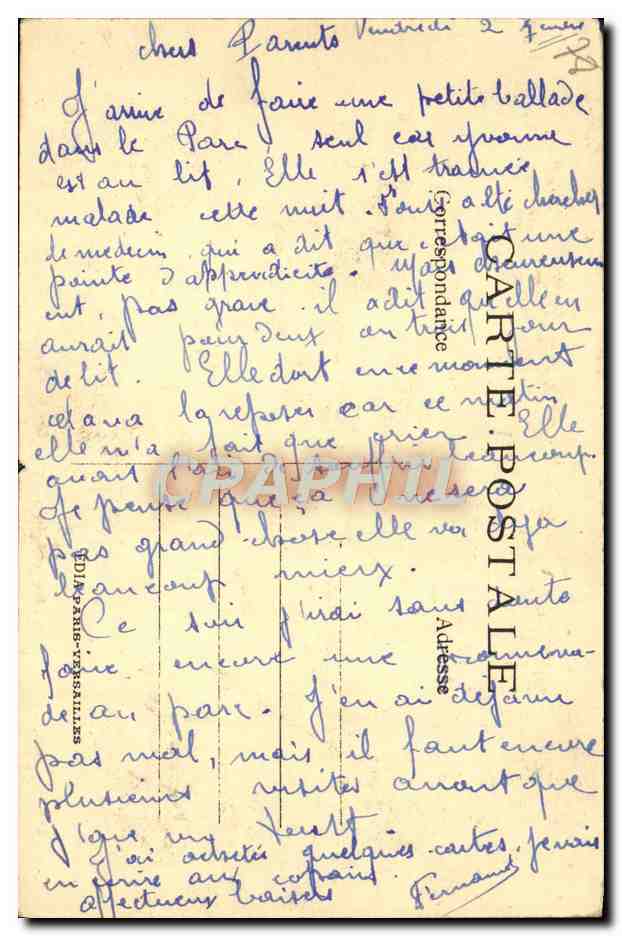 Vendredi 2
chers Parents
J'arrive de faire une petite ballade
dans le Parc, seul car Yvonne
est au lit. Elle s'est trouvée
malade cette nuit. a été chercher
le medecin qui a dit que c'etait une
pointe d'appendicite. Mais heureusem
ent, pas grave. il a dit qu'elle en
aurait pour deux ou trois jour
de lit. Elle dort en ce moment
ça va la reposer car ce matin
elle n'a fait que crier. Elle
avait l'air de souffrir beaucoup.
Je pense que ça ne sera
pas grand chose elle va déja
beaucoup mieux.
Ce soir j'irai sans doute
faire encore une promena-
de au parc. J'en ai déja vu
pas mal, mais il faut encore
plusieurs visites avant que
j'aie vu tout
J'ai acheté quelques cartes, je vais
en écrire aux copains.
affectueux baisers
Fernand
CARTE POSTALE
Correspondance
Adresse
EDIA PARIS-VERSAILLES
CPAPHIL